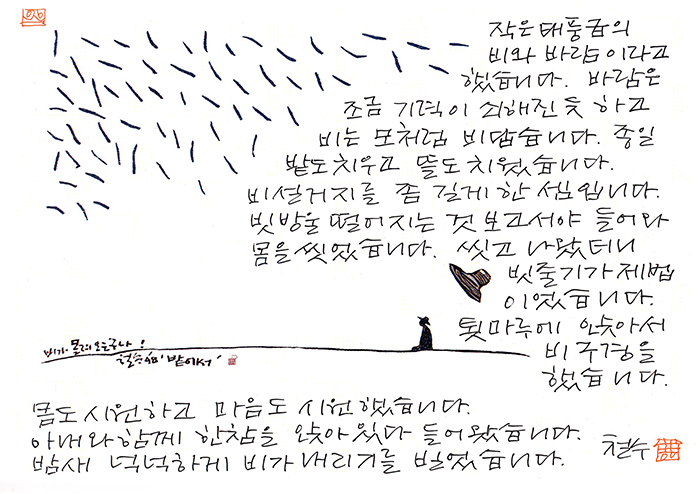 작은 태풍급의
비와 바람이라고
했습니다. 바람은
조금 기력이 쇠해진 듯 하고
비는 모처럼 비답습니다. 종일
밭도 치우고 뜰도 치웠습니다.
비설거지를 좀 길게 한 셈입니다.
빗방울 떨어지는 것 보고서야 들어와
몸을 씻었습니다. 씻고 나왔더니
빗줄기가 제법
이었습니다.
툇마루에 앉아서
비 구경을
했습니다.
비가 몰려오는구나!
철수 '밭에서'
몸도 시원하고 마음도 시원했습니다.
아내와 함께 한참을 앉아 있다 들어왔습니다.
밤새 넉넉하게 비가 내리기를 빌었습니다.
철수